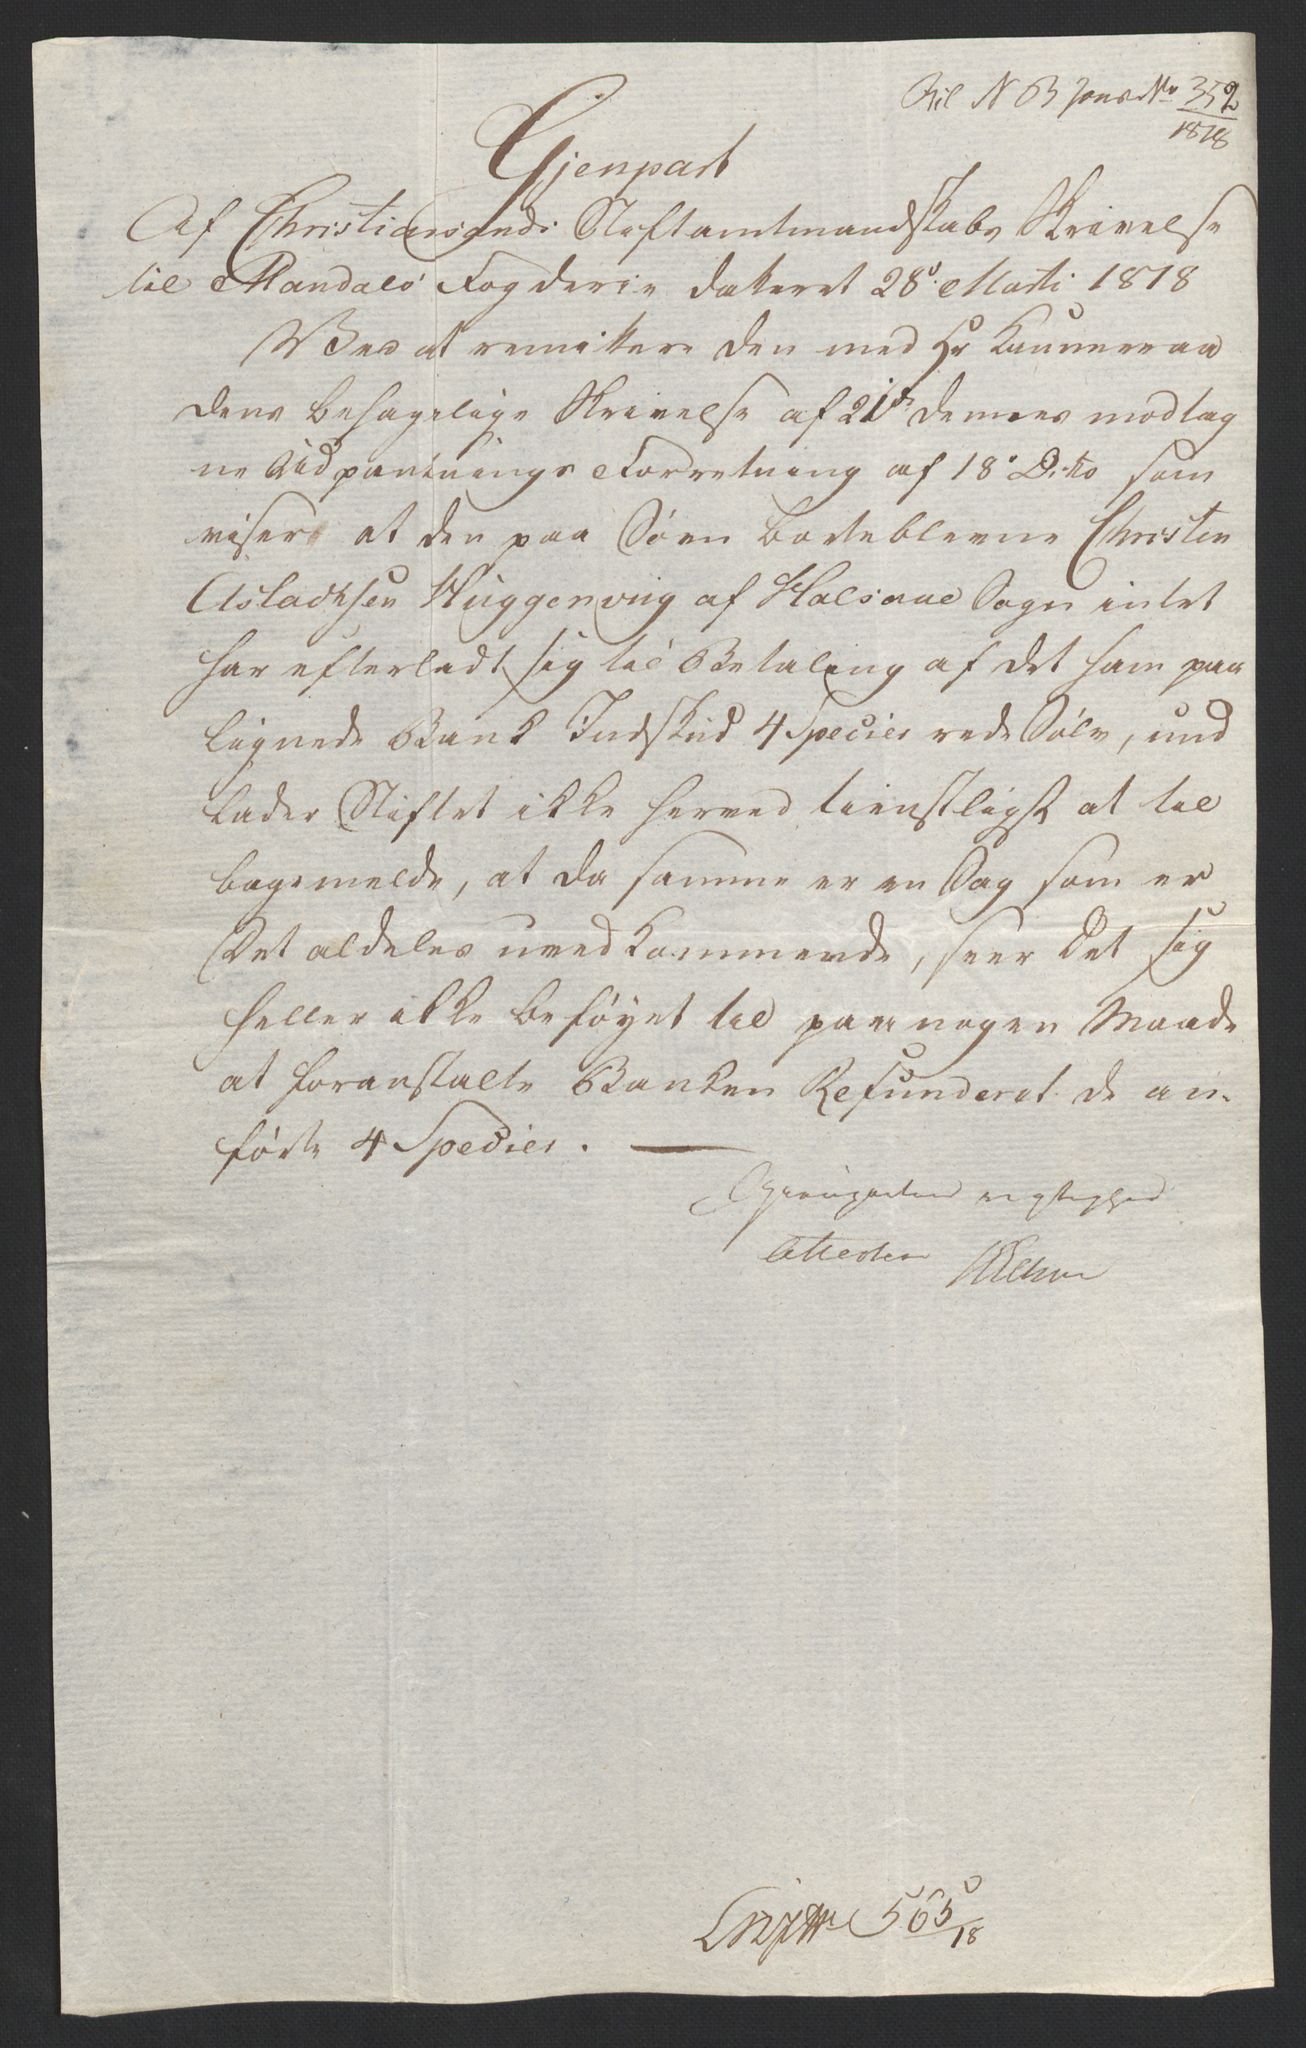 Til N B Jour No 352
1818
Gjenpart
Af Christiansands Stiftamtmandskabs Skrivelse
til Mandals Fogderie dateret 28de Marti 1818
Ved at remittere den med Hr Kammeraa
dens behagelige Skrivelse af 21de dennes modtag
ne Udpantnings Forretning af 18de Dito som
viser at den paa Søen borteblevne Christen
Asladhsen Kuggerviig af Halsaae Sogn intet
har efterladt sig til Betaling af det ham paa
lignede Bank Indskud 4 Specier rede Sølv, und
lader Stiftet ikke herved tienstligst at til
bagemelde, at da samme er en Sag som er
Det aldeles uvedkommende, seer Det sig
heller ikke beføyet til paa nogen Maade
at foranstalte Banken Refunderet de an-
førte 4 Specier.
Gjenpartens rigtighed
Attesterer
565
18